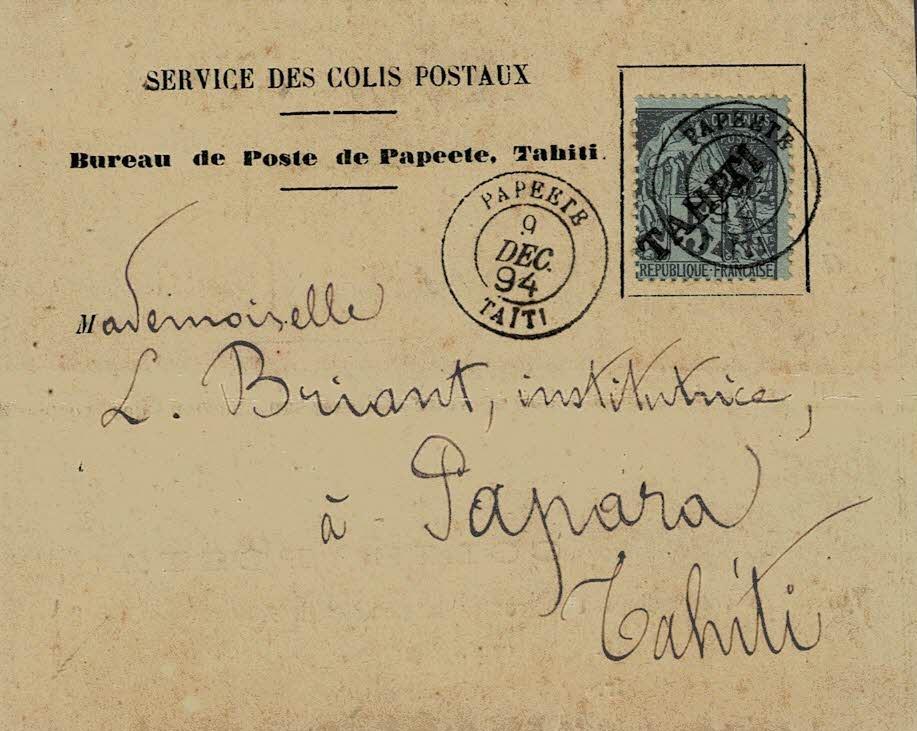 SERVICE DES COLIS POSTAUX
Bureau de Poste de Papeete, Tahiti.
PAPEETE
9
DEC.
94
TAITI
PAPEETE
TAHITI
94
TAITI
RÉPUBLIQUE-FRANÇAISE
Mademoiselle
L. Briant, institutrice,
à Papara
Tahiti